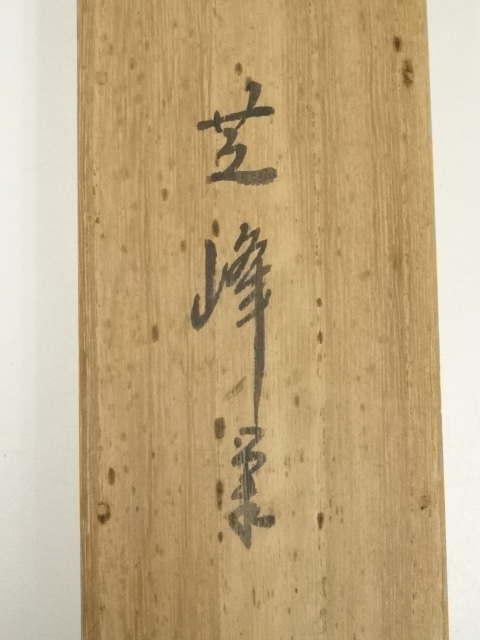 芝峰筆